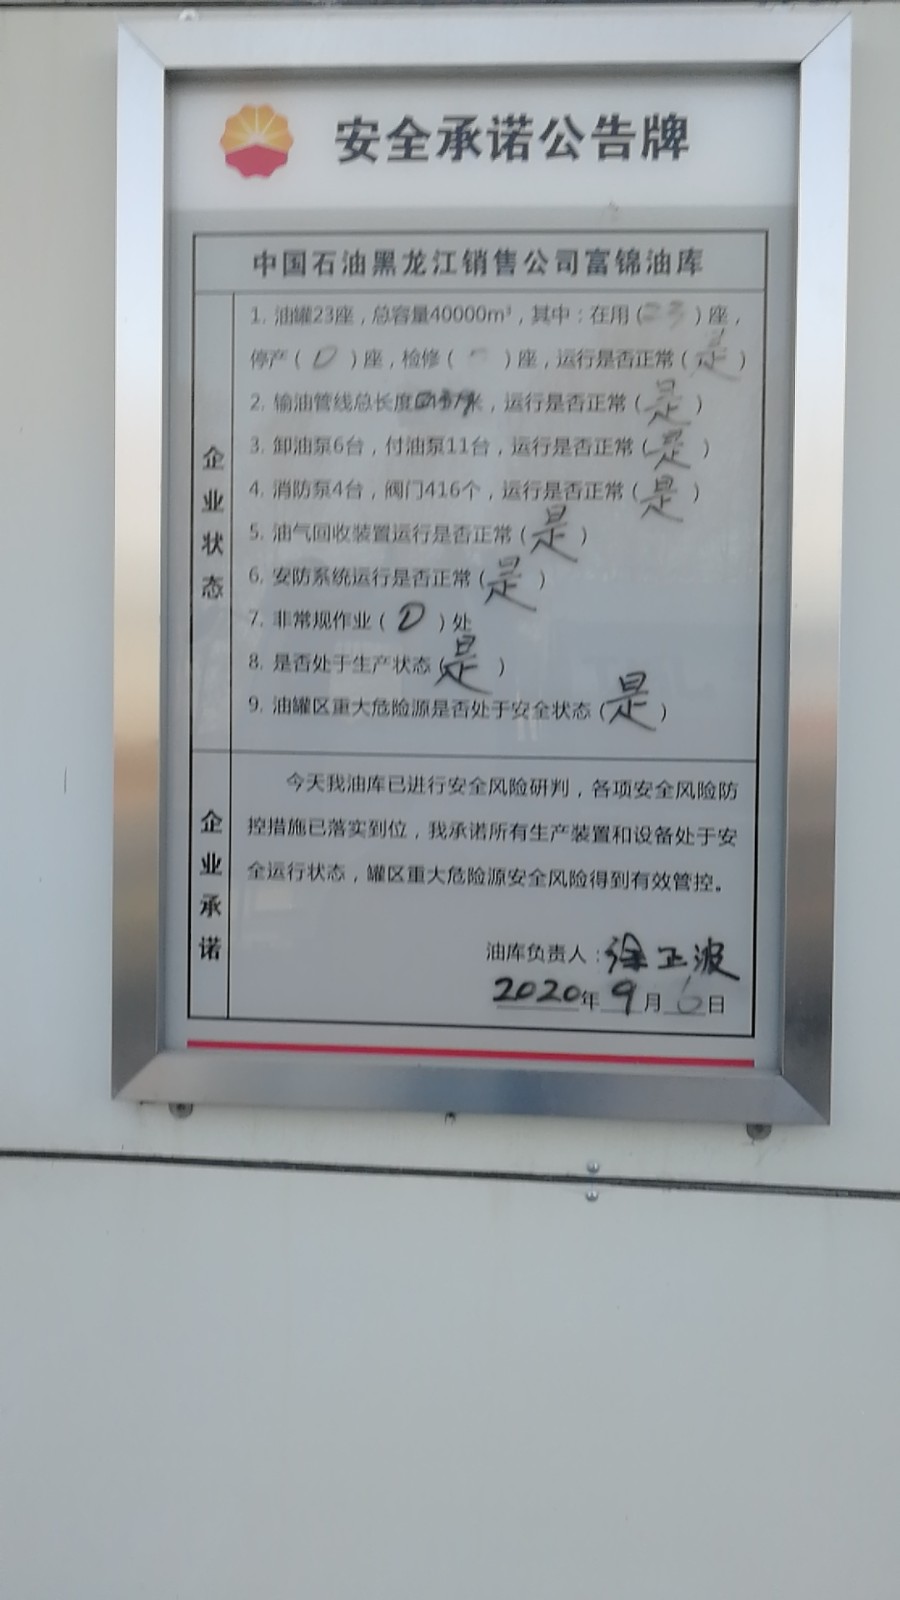 安全承诺公告牌
中国石油黑龙江销售公司富锦油库
企业状态
1. 油罐23座，总容量40000m³，其中：在用（23）座，
停产（0）座，检修（ ）座，运行是否正常（是）
2. 输油管线总长度 米，运行是否正常（是）
3. 卸油泵6台，付油泵11台，运行是否正常（是）
4. 消防泵4台，阀门416个，运行是否正常（是）
5. 油气回收装置运行是否正常（是）
6. 安防系统运行是否正常（是）
7. 非常规作业（0）处
8. 是否处于生产状态（是）
9. 油罐区重大危险源是否处于安全状态（是）
企业承诺
今天我油库已进行安全风险研判，各项安全风险防
控措施已落实到位，我承诺所有生产装置和设备处于安
全运行状态，罐区重大危险源安全风险得到有效管控。
油库负责人：徐正波
2020年9月6日